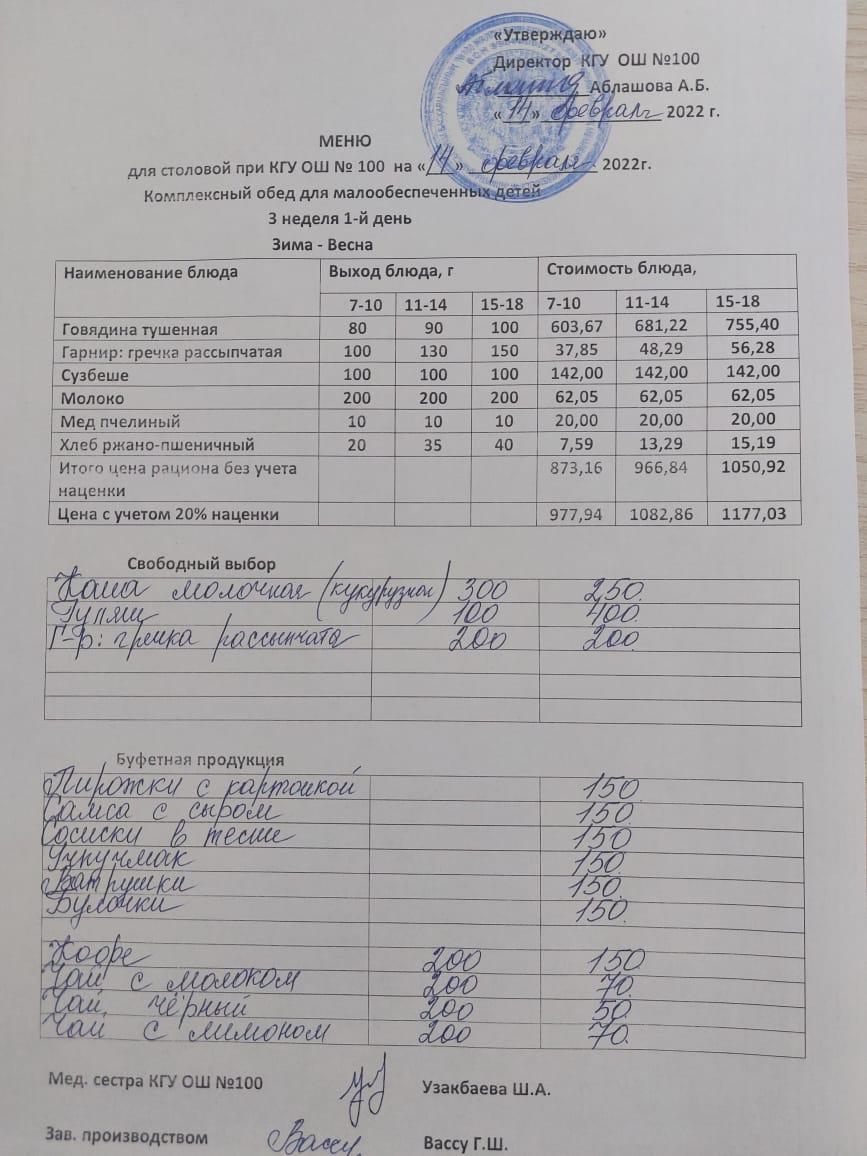 «Утверждаю»
Директор КГУ ОШ №100
Аблашова А.Б.
«14» февраля 2022 г.
МЕНЮ
для столовой при КГУ ОШ № 100 на «14» февраля 2022г.
Комплексный обед для малообеспеченных детей
3 неделя 1-й день
Зима - Весна
Наименование блюда Выход блюда, г Стоимость блюда,
7-10 11-14 15-18 7-10 11-14 15-18
Говядина тушенная 80 90 100 603,67 681,22 755,40
Гарнир: гречка рассыпчатая 100 130 150 37,85 48,29 56,28
Сузбеше 100 100 100 142,00 142,00 142,00
Молоко 200 200 200 62,05 62,05 62,05
Мед пчелиный 10 10 10 20,00 20,00 20,00
Хлеб ржано-пшеничный 20 35 40 7,59 13,29 15,19
Итого цена рациона без учета 873,16 966,84 1050,92
наценки
Цена с учетом 20% наценки 977,94 1082,86 1177,03
Свободный выбор
Каша молочная (кукурузная) 300 250.
Гуляш 100 400.
Г-р: гречка рассыпчата 200 200.
Буфетная продукция
Пирожки с картошкой 150.
Самса с сыром 150.
Сосиски в тесте 150
Учпучмак 150.
Ватрушки 150.
Булочки 150.
Кофе 200 150.
Чай с молоком 200 70.
Чай чёрный 200 50.
Чай с лимоном 200 70.
Мед. сестра КГУ ОШ №100 Узакбаева Ш.А.
Зав. производством Вассу Вассу Г.Ш.